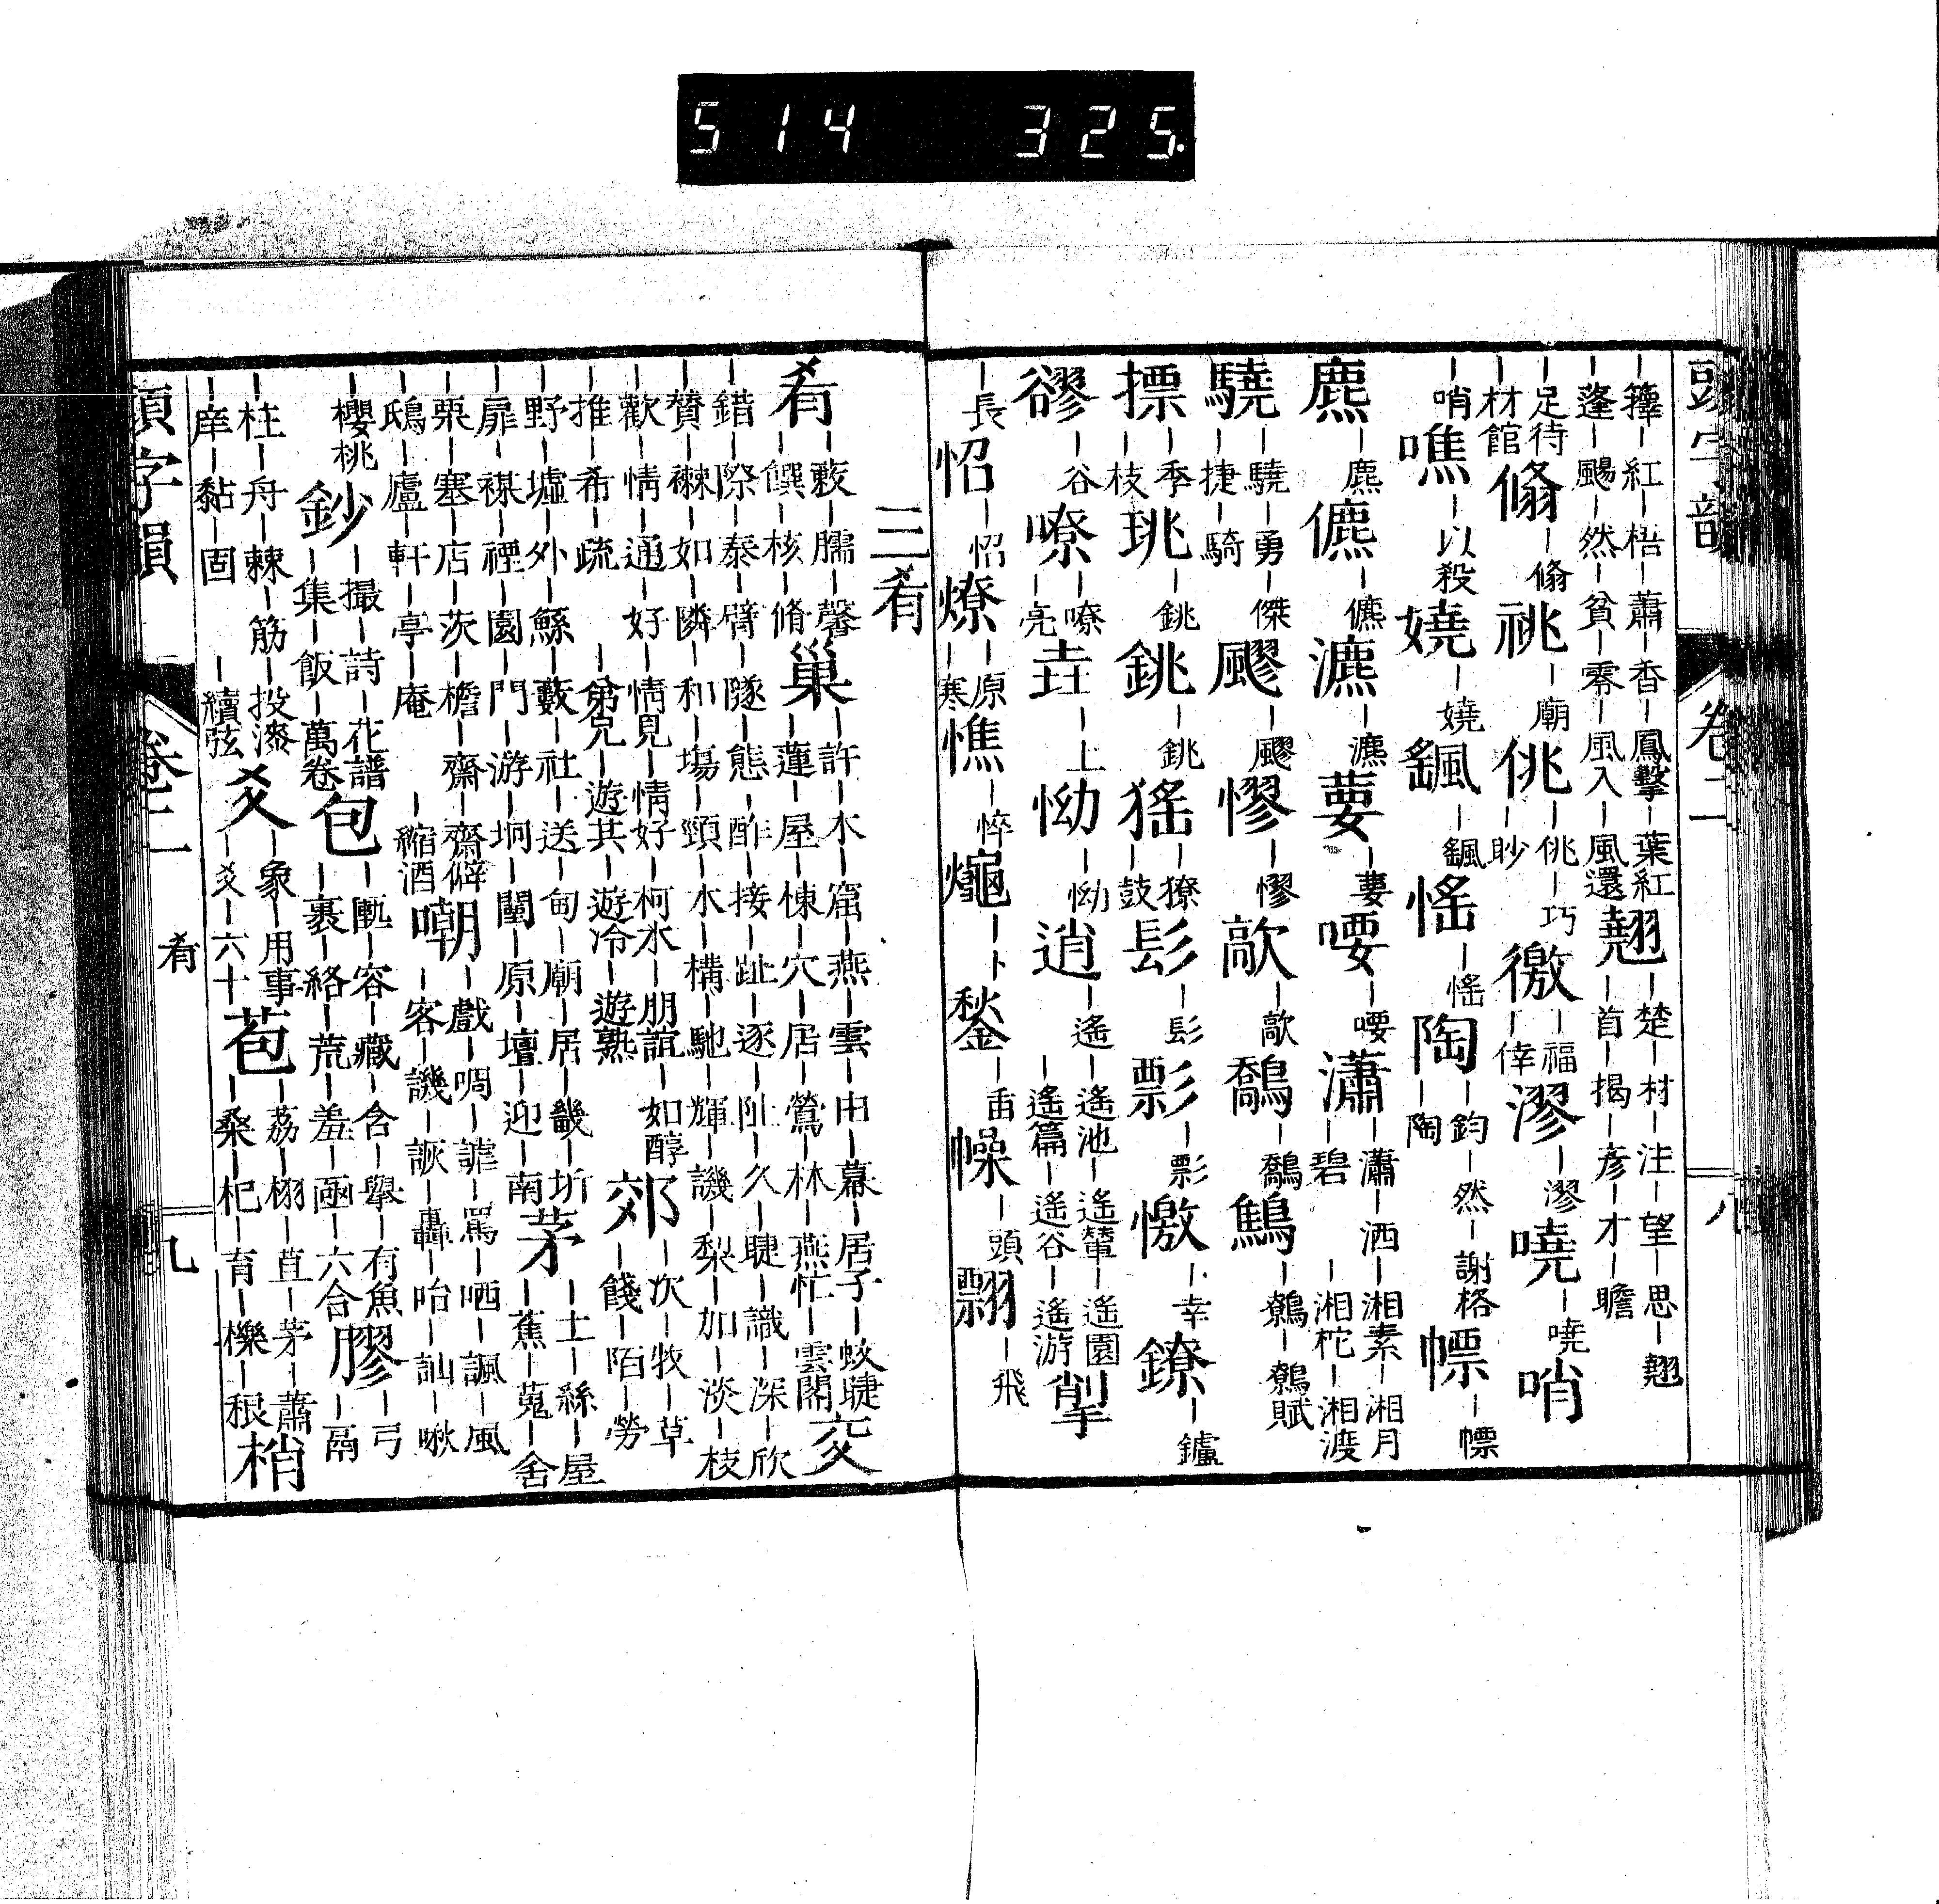 514 325.
頭字韻 卷二 八
籜｜紅｜梧｜蕭｜香｜鳳擊｜葉紅
蓬｜颺｜然｜貧｜零｜風入｜風還
翹｜楚｜材｜注｜望｜思｜翹
｜首｜揭｜彥｜才｜瞻
｜足待
｜材館
翛｜翛祧｜廟佻｜佻｜巧
｜眇
徼｜福
｜倖
漻｜漻嘵｜嘵哨
｜哨噍｜以殺嬈｜嬈颻｜颻愮｜愮陶｜鈞｜然｜謝格
｜陶
幖｜幖
麃｜麃儦｜儦瀌｜瀌葽｜葽喓｜喓瀟｜瀟｜洒｜湘素｜湘月
｜碧｜湘柁｜湘渡
驍｜驍｜勇｜傑
｜捷｜騎
飂｜飂憀｜憀歊｜歊鷮｜鷮鷦｜鷯｜鷯賦
摽｜季
｜枝
珧｜銚銚｜銚猺｜獠
｜鼓
髟｜髟彯｜彯憿｜幸鐐｜鑪
｜谷嘹｜嘹
｜亮
垚｜上怮｜怮逍｜遙｜遙池｜遙輦｜遙園
｜遙篇｜遙谷｜遙游
｜長怊｜怊燎｜原
｜寒
憔｜悴｜卜鍫｜臿幧｜頭翲｜飛
三肴
肴｜蔌｜臑｜馨
｜饌｜核｜脩
巢｜許｜木｜窟｜燕｜雲｜由｜幕｜居子｜蛟睫
｜蓮｜屋｜棟｜穴｜居｜鶯｜林｜燕忙｜雲閣
交
｜錯｜際｜泰｜臂｜隧｜態｜酢｜接｜趾｜逐｜阯｜久｜睫｜識｜深｜欣
｜贊｜襟｜如｜隣｜和｜塲｜頸｜水｜構｜馳｜輝｜譏｜梨｜加｜淡｜枝
｜歡｜情｜通｜好｜情見｜情好｜柯水｜朋誼｜如醇
｜推｜希｜疏｜弟兄｜遊其｜遊冷｜遊熟
郊｜次｜牧｜草
｜餞｜陌｜勞
｜野｜墟｜外｜鯀｜藪｜社｜送｜甸｜廟｜居｜畿｜圻
｜扉｜禖｜禋｜園｜門｜游｜坰｜闉｜原｜壇｜迎｜南
茅｜土｜絲｜屋
｜蕉｜蒐｜舍
｜栗｜塞｜店｜茨｜檐｜齋｜齋僻
｜鴟｜廬｜軒｜亭｜庵｜縮酒
嘲｜戲｜啁｜謔｜罵｜哂｜諷｜風
｜客｜譏｜詼｜轟｜咍｜訕｜啾
｜櫻桃鈔｜撮｜詩｜花譜
｜集｜飯｜萬卷
包｜匭｜容｜藏｜含｜舉｜有魚
｜裹｜絡｜荒｜羞｜函｜六合
膠｜弓
｜鬲
｜柱｜舟｜棘｜筋｜投漆
｜庠｜黏｜固｜續弦
爻｜象｜用事
｜爻｜六十
苞｜荔｜栩｜苴｜茅｜蕭
｜桑｜杞｜育｜櫟｜稂
梢
頭字韻 卷二 肴 九